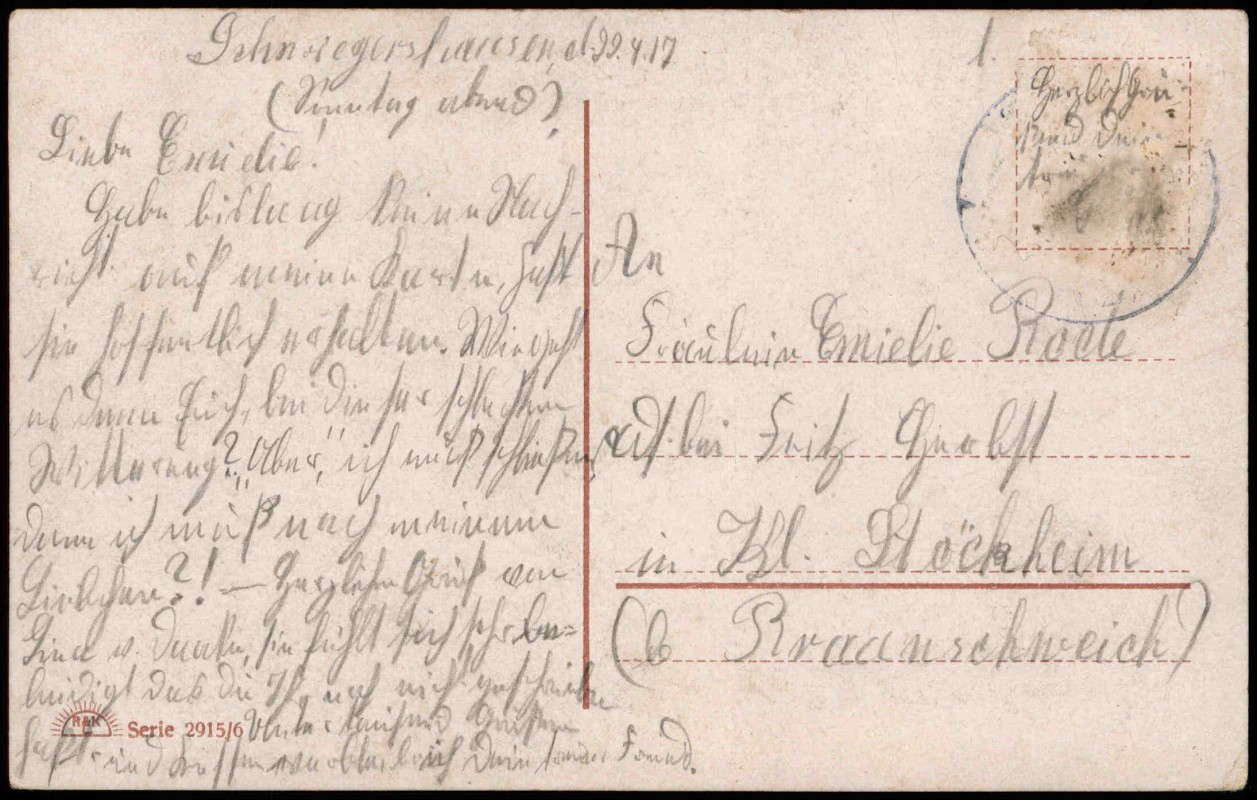 Schwiegershausen, d. 22.4.17
(Sonntag abend)
Liebe Emielie!
Habe bislang keine Nach-
richt auf meine Karte, hast
sie hoffentlich erhalten. Wie geht
es denn Euch, bei dieser schlechten
Witterung? Aber, ich muß schließen,
denn ich muß nach meinem
Liebchen?! — Herzlichen Gruß von
Lina u. sie fühlt sich sehr be-
leidigt das du Ihr noch nicht geschrieben
hast. Unter tausend Grüßen
und Küssen verbleibe ich Dein Freund.
1.
Herzlich Grü-
und Dein
An
Fräulein Emielie Rode
bei Fritz Herbst
in Kl. Stöckheim
(b Braunschweich)
R&K
Serie 2915/6